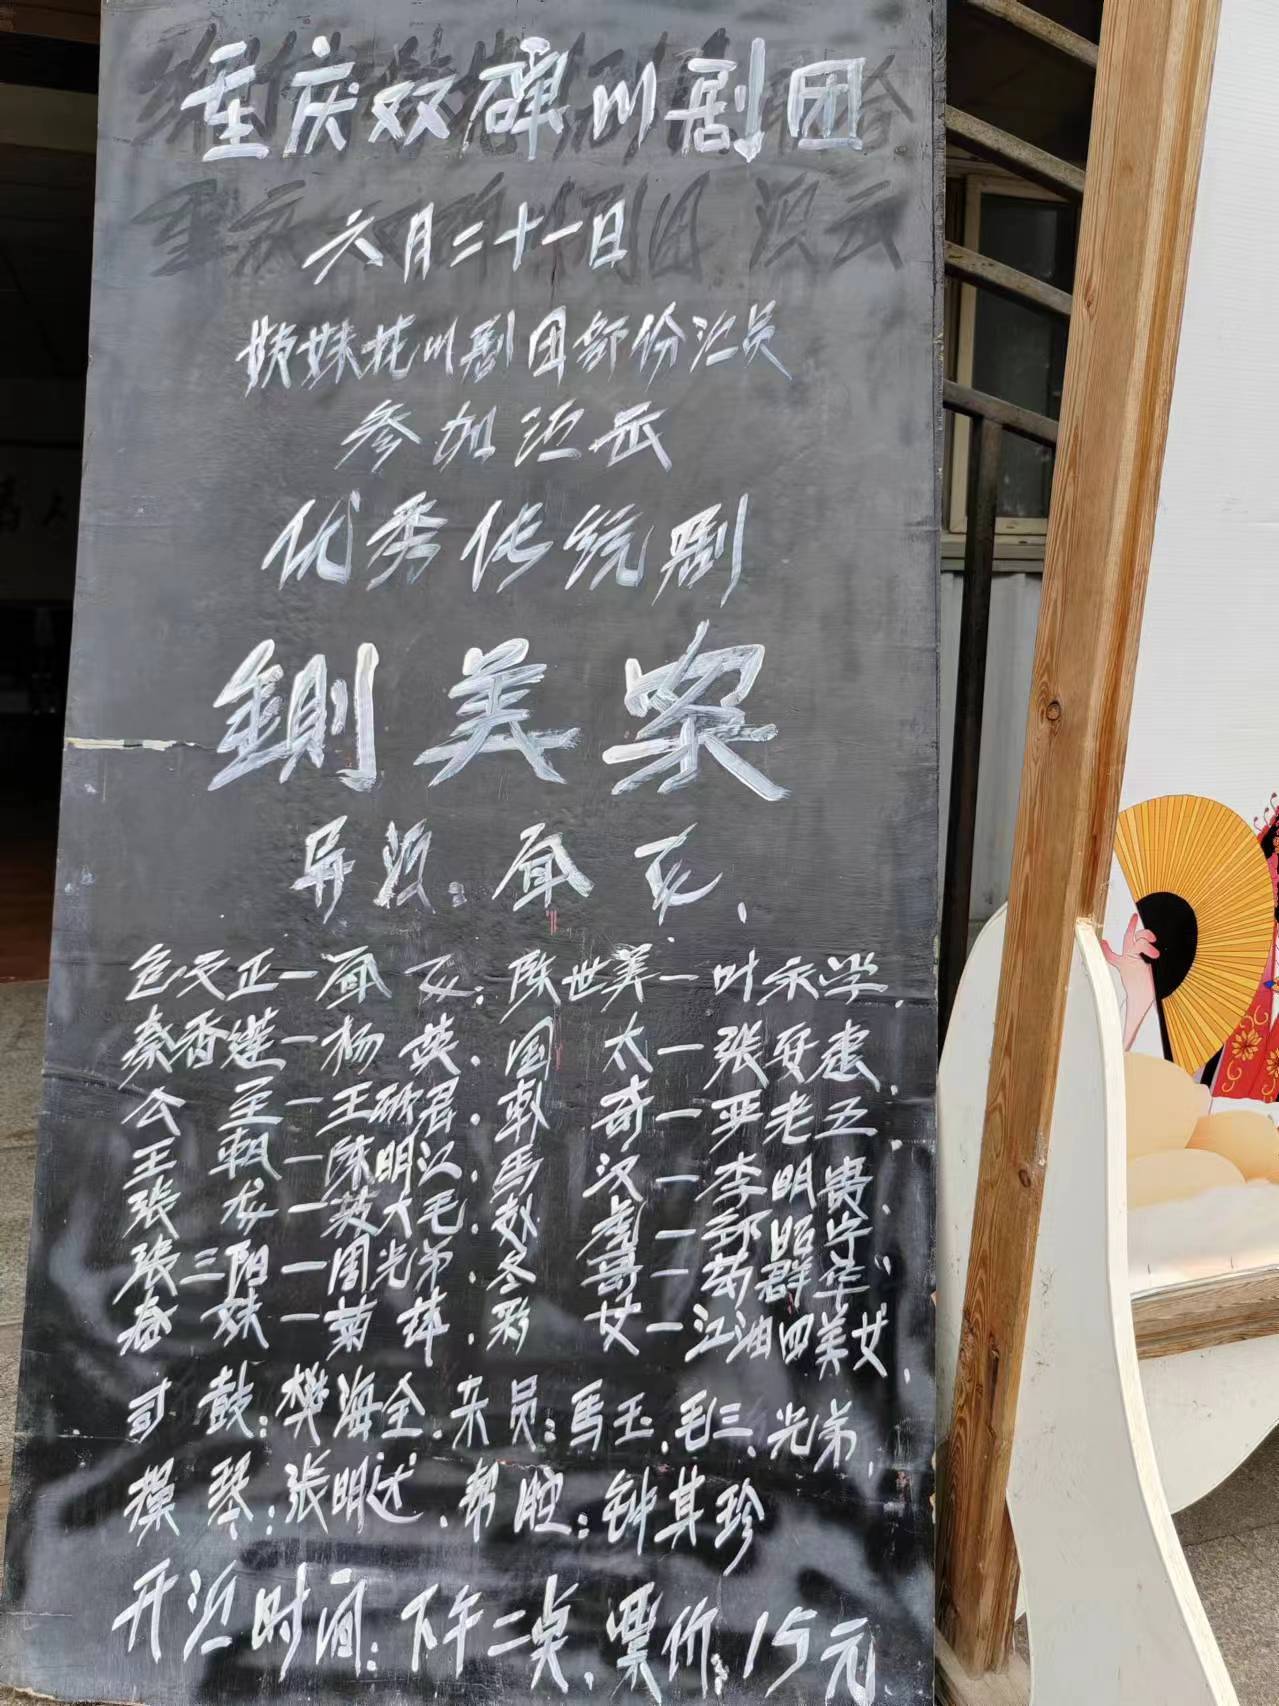 重庆双碑川剧团
六月二十一日
姊妹花川剧团部份演员
参加演出
优秀传统剧
铡美案
导演:
包天正一 陈世美一叶永学.
秦香莲一杨英.国太一张安惠.
公主一王砂君.韩奇一严老五.
王朝一陈明汉.馬汉一李明贵.
张龙一英大毛.赵虎一邹昭宁
张三阳一周光弟.冬哥一苟群华
春妹一菊萍.彩女一江油四美女.
司鼓:樊海全.杂员:馬玉.毛三.光弟.
操琴:张明达.帮腔:钟其珍
开演时间:下午二点.票价:15元